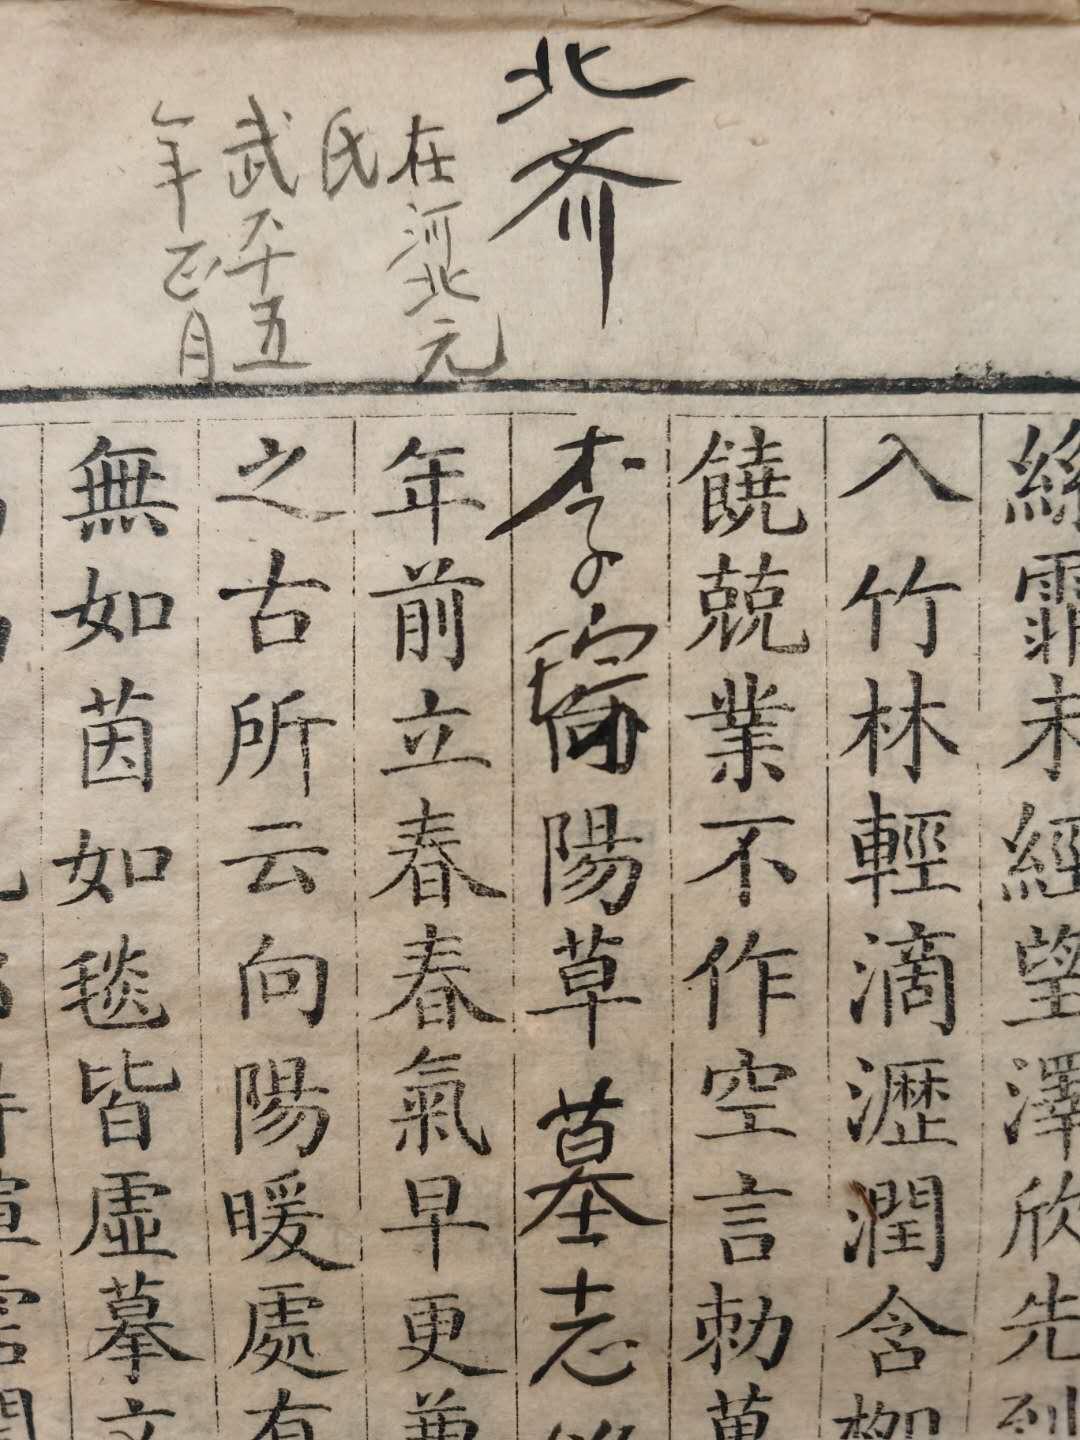 北齐
在河北元
氏
武平十五
年正月
絲霏未經望澤欣先到
入竹林輕滴瀝潤含
饒兢業不作空言勅萬
李琮
向陽草
墓志
年前立春春氣早更
之古所云向陽暖處有
無如茵如毯皆虛摹文